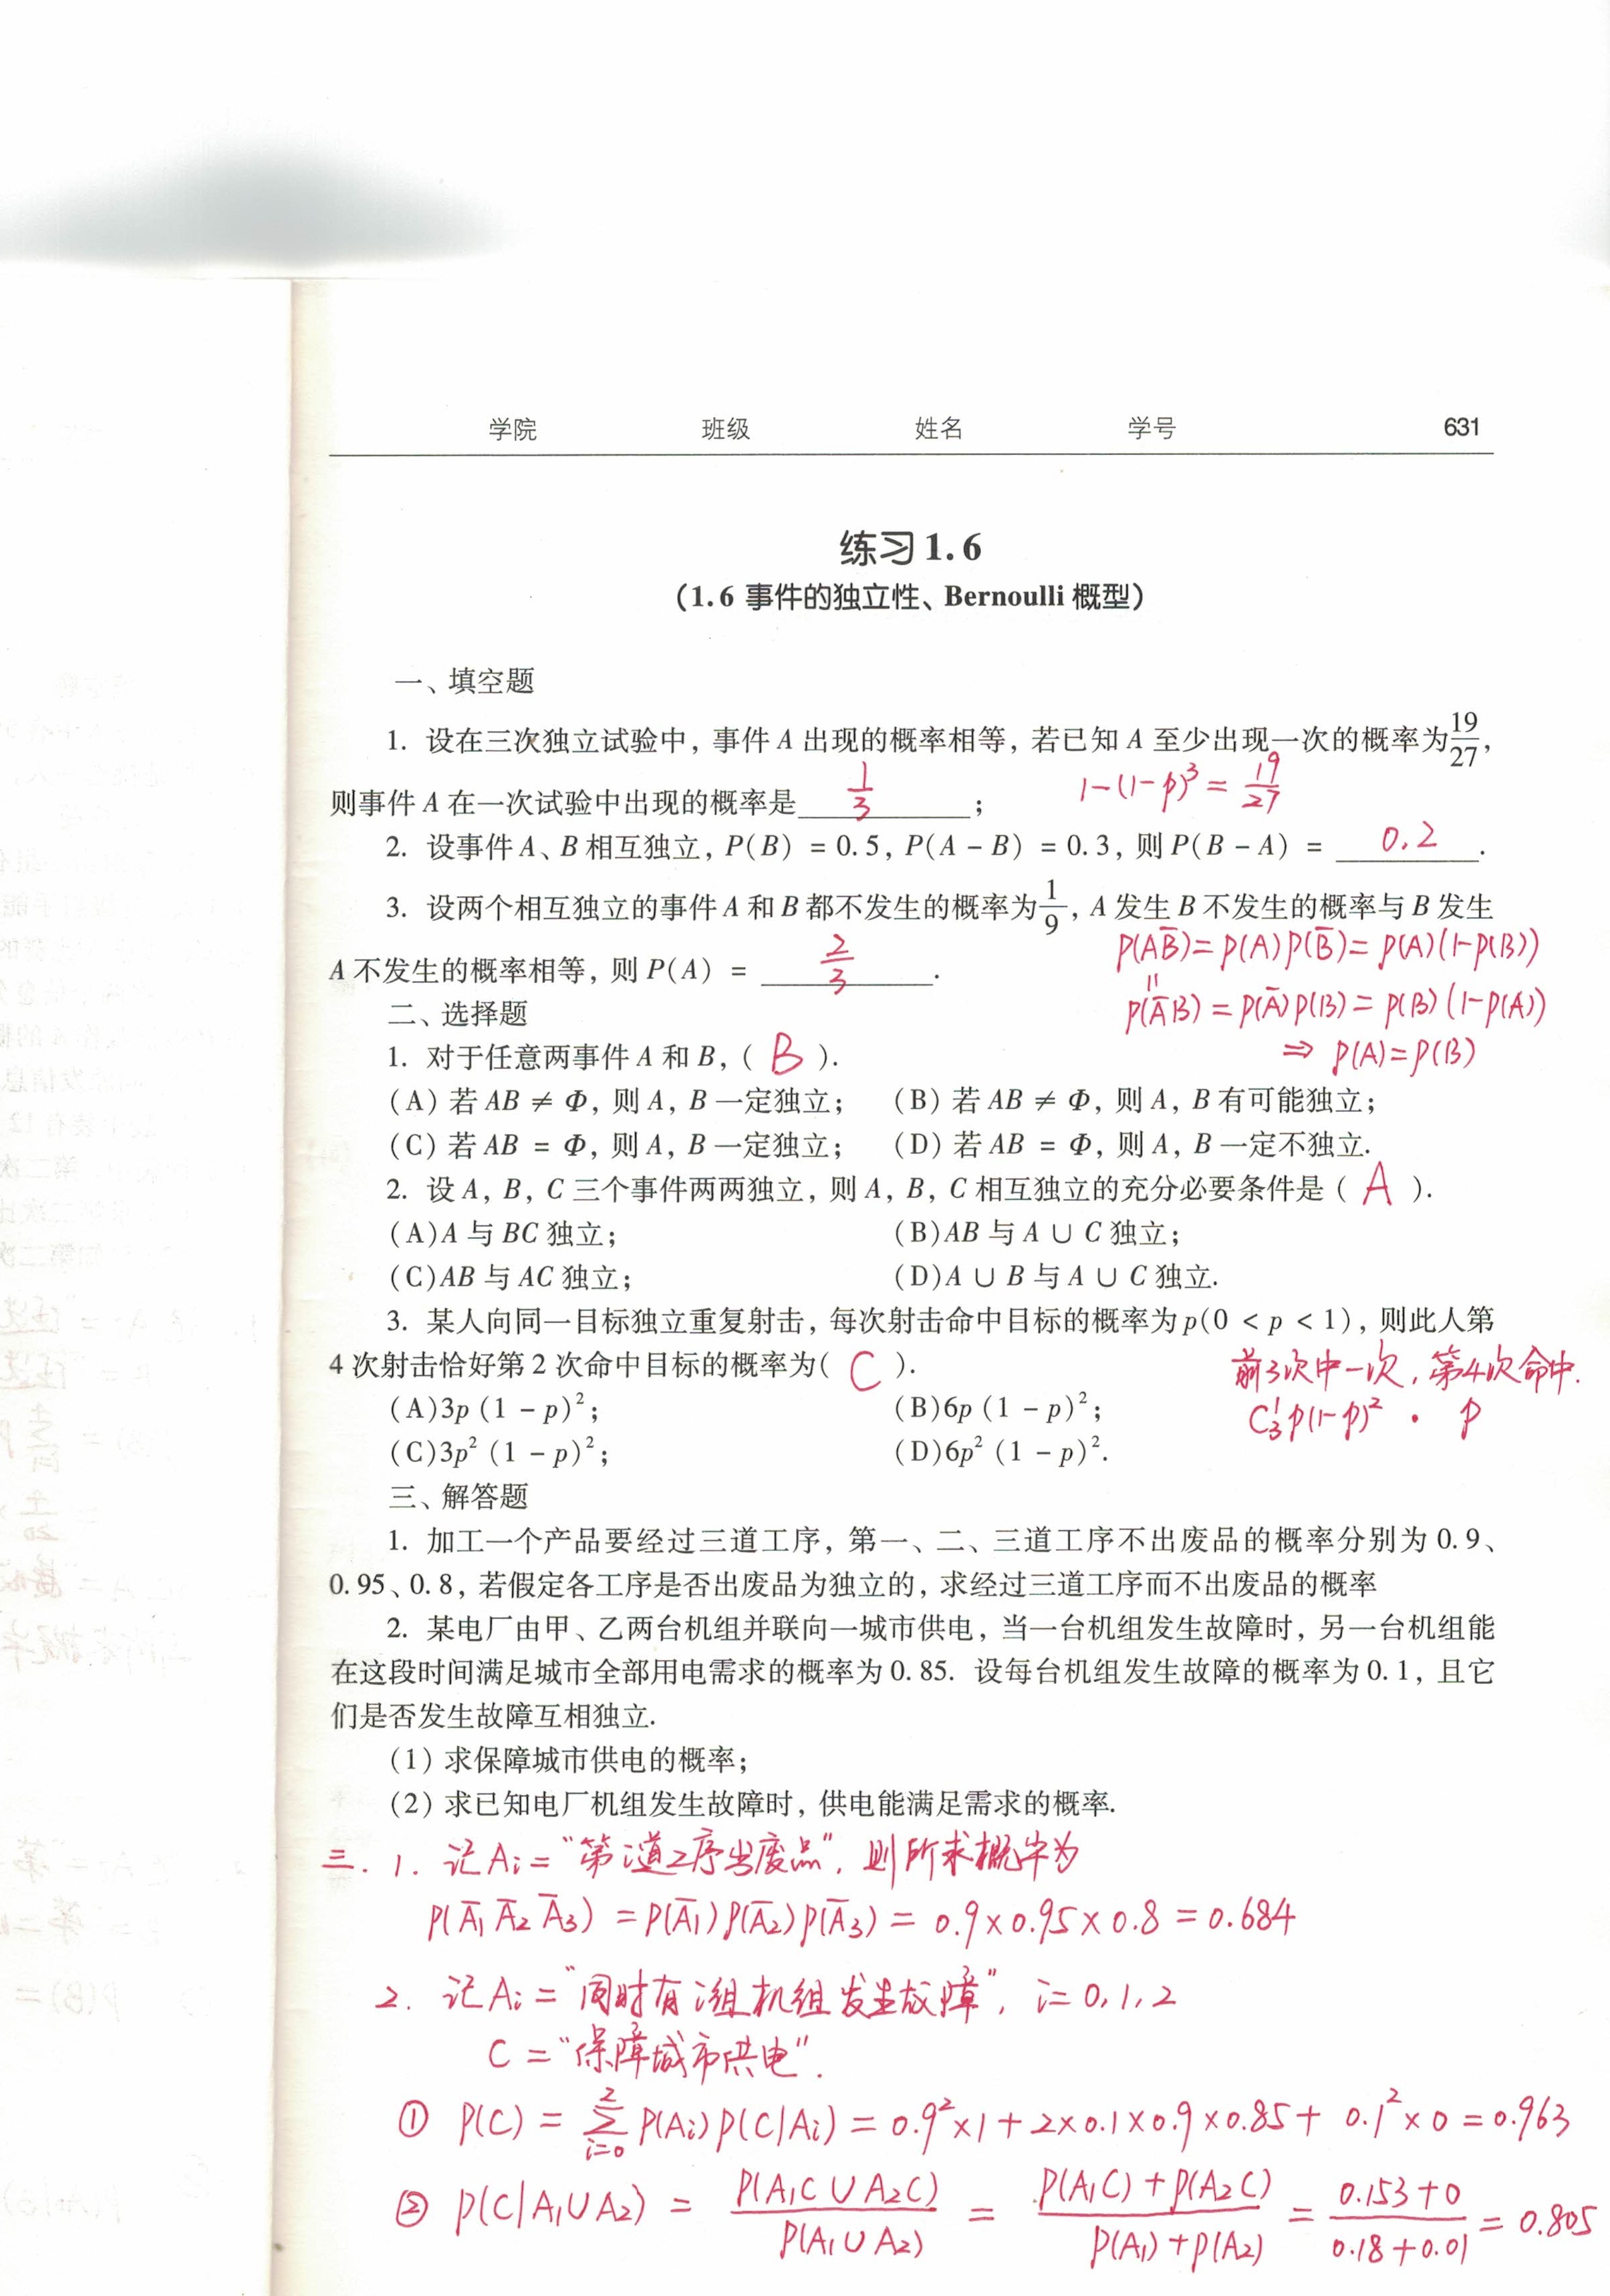 学院 班级 姓名 学号 631
练习1.6
（1.6 事件的独立性、Bernoulli 概型）
一、填空题
1. 设在三次独立试验中，事件 A 出现的概率相等，若已知 A 至少出现一次的概率为 19/27，
则事件 A 在一次试验中出现的概率是 1/3 ； 1-(1-p)³ = 19/27
2. 设事件 A、B 相互独立，P(B) = 0.5，P(A - B) = 0.3，则 P(B - A) = 0.2 .
3. 设两个相互独立的事件 A 和 B 都不发生的概率为 1/9，A 发生 B 不发生的概率与 B 发生
P(AB̄) = P(A)P(B̄) = P(A)(1-P(B))
A 不发生的概率相等，则 P(A) = 2/3 .
||
P(ĀB) = P(Ā)P(B) = P(B)(1-P(A))
⇒ P(A)=P(B)
二、选择题
1. 对于任意两事件 A 和 B，( B ).
(A) 若 AB ≠ Φ，则 A，B 一定独立； (B) 若 AB ≠ Φ，则 A，B 有可能独立；
(C) 若 AB = Φ，则 A，B 一定独立； (D) 若 AB = Φ，则 A，B 一定不独立.
2. 设 A，B，C 三个事件两两独立，则 A，B，C 相互独立的充分必要条件是 ( A ).
(A)A 与 BC 独立； (B)AB 与 A ∪ C 独立；
(C)AB 与 AC 独立； (D)A ∪ B 与 A ∪ C 独立.
3. 某人向同一目标独立重复射击，每次射击命中目标的概率为 p(0 < p < 1)，则此人第
4 次射击恰好第 2 次命中目标的概率为( C ). 前3次中一次，第4次命中.
(A)3p (1 - p)²； (B)6p (1 - p)²； C₃¹p(1-p)² · p
(C)3p² (1 - p)²； (D)6p² (1 - p)².
三、解答题
1. 加工一个产品要经过三道工序，第一、二、三道工序不出废品的概率分别为 0.9、
0.95、0.8，若假定各工序是否出废品为独立的，求经过三道工序而不出废品的概率
2. 某电厂由甲、乙两台机组并联向一城市供电，当一台机组发生故障时，另一台机组能
在这段时间满足城市全部用电需求的概率为 0.85. 设每台机组发生故障的概率为 0.1，且它
们是否发生故障互相独立.
(1) 求保障城市供电的概率；
(2) 求已知电厂机组发生故障时，供电能满足需求的概率.
三. 1. 记 Ai = “第i道工序出废品”，则所求概率为
P(Ā₁Ā₂Ā₃) = P(Ā₁)P(Ā₂)P(Ā₃) = 0.9×0.95×0.8 = 0.684
2. 记 Ai = “同时有i组机组发生故障”，i=0,1,2
C = “保障城市供电”.
① P(C) = ∑_{i=0}^{2} P(Ai)P(C|Ai) = 0.9²×1+2×0.1×0.9×0.85+0.1²×0 = 0.963
② P(C|A₁∪A₂) = P(A₁C∪A₂C)/P(A₁∪A₂) = (P(A₁C)+P(A₂C))/(P(A₁)+P(A₂)) = (0.153+0)/(0.18+0.01) = 0.805